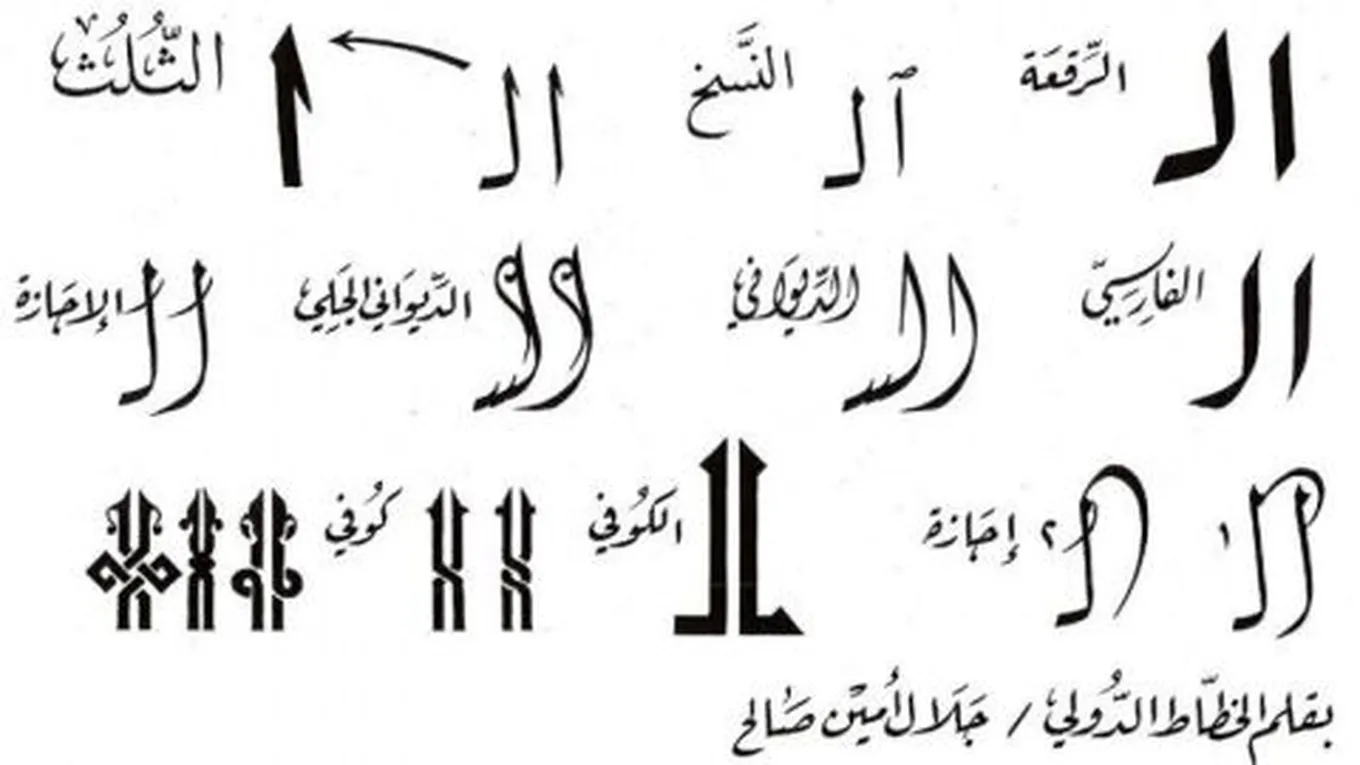 الـ الرِّقعَة آلـ النَّسخ الـ ا الثُّلُث
الـ الفَارِسِيّ الـ الدِّيوَاني الـ الدِّيوَاني الجَلِي الـ الإجَازة
الـ ١ الـ ٢ إِجَازة الـ الكُوفي ا ا كُوفي
بقلم الخطّاط الدُّولي / جَلَال أُمِين صَالح